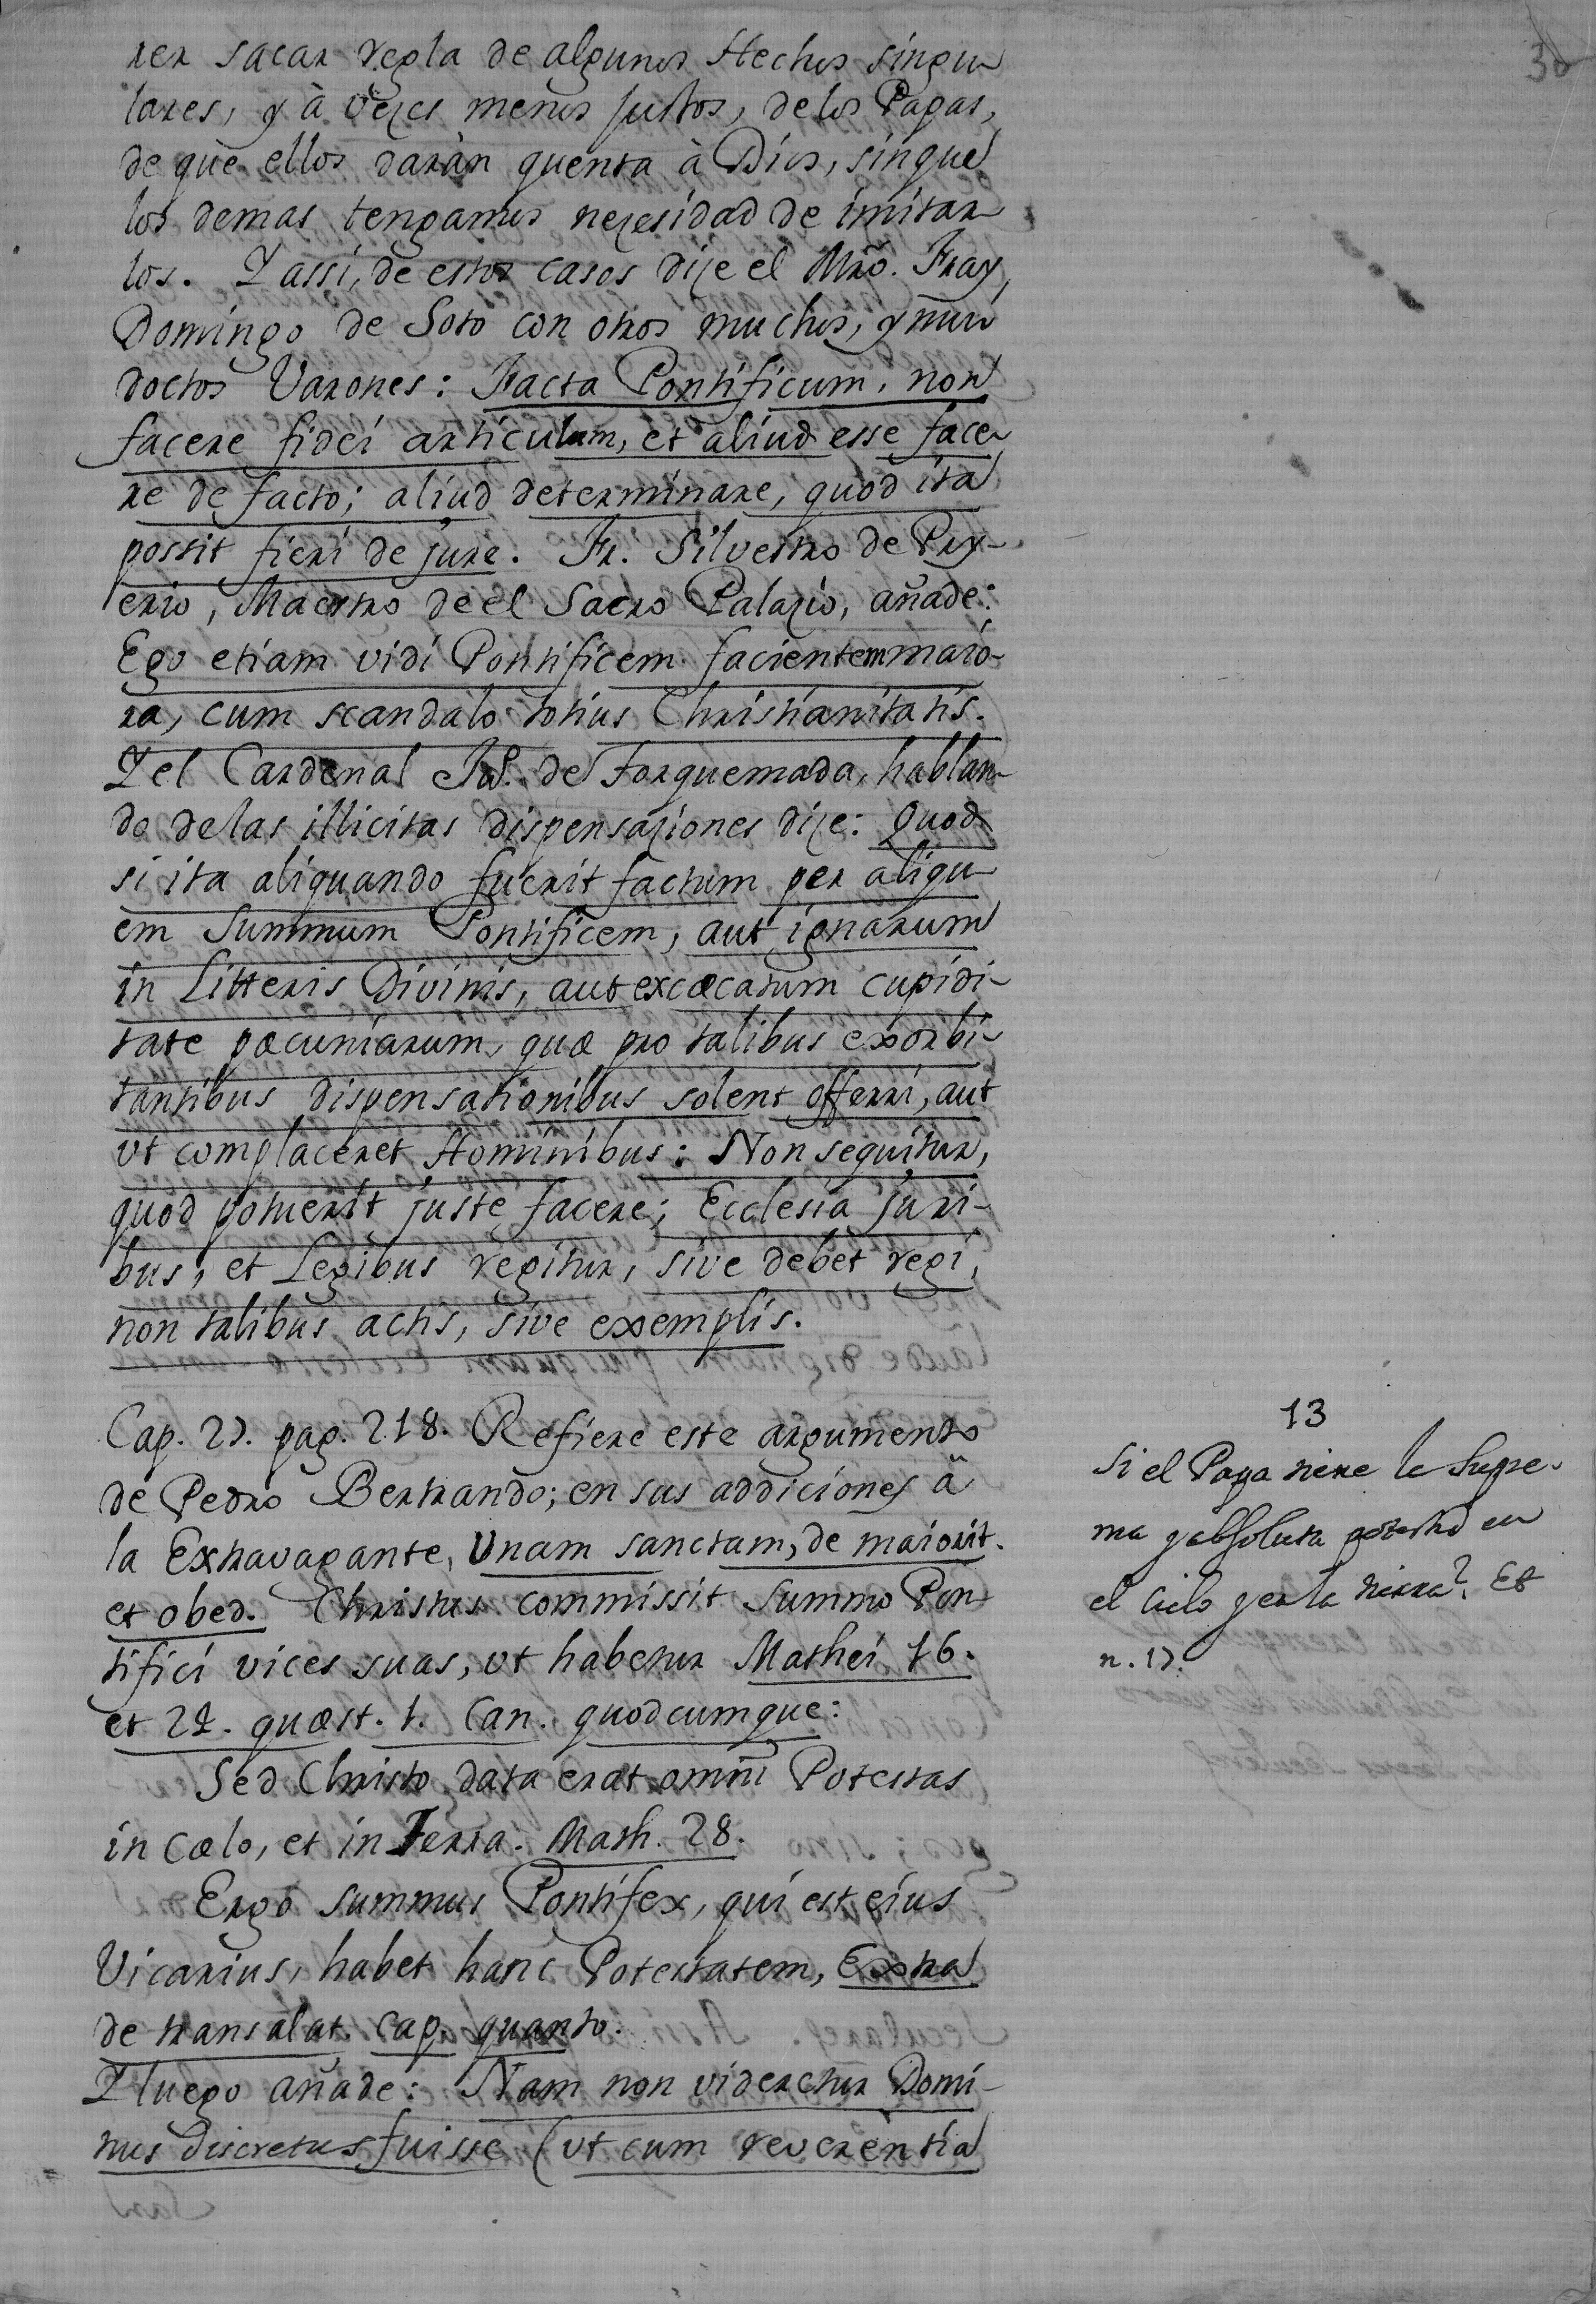 30
rer sacar regla de algunos Hechos singu-
lares, y à vezes menos justos, de los Papas,
de què ellos daràn quenta à Dios, sinque
los demas tengamos nezesidad de imitar-
los. Y assi, de estos casos dize el Mrõ. Fray
Domingo de Soto con otros muchos, y mui
doctos Varones: Facta Pontificum, non
facere fidei articulum, et aliud esse face-
re de facto; aliud determinare, quod ita
possit fieri de jure. Fr. Silvestro de Pry-
erio, Maestro de el Sacro Palazio, añade:
Ego etiam vidi Pontificem facientem maio-
ra, cum scandalo totius Christianitatis.
Y el Cardenal de Torquemada, hablan-
do delas illicitas dispensaziones dize: Quod
si ita aliquando fuerit factum per aliqu-
em Summum Pontificem, aut ignarum
in Litteris Divinis, aut excæcatum cupidi-
tate pæcuniarum, quæ pro talibus exorbi-
tantibus dispensationibus solent offerri, aut
vt complaceret Hominibus: Non sequitur,
quod potuerit juste facere; Ecclesia juri-
bus, et Legibus regitur, sive debet regi,
non talibus actis, sive exemplis.
Cap. 27. pag. 218. Refiere este argumento
de Pedro Bertrando; en sus addiciones ã
la Extravagante, Unam sanctam, de maiorit.
et obed. Christus commissit Summo Pon-
tifici vices suas, vt habetur Mathei 16.
et 24. quæst. 1. Can. quodcumque:
Sed Christo data erat omni Potestas
in Cælo, et in Terra. Math. 28.
Ergo summus Pontifex, qui est eius
Vicarius, habet hanc Potestatem, Extra
de transalat. cap. quanto.
Y luego añade: Nam non videretur Domi-
nus discretus fuisse (vt cum reverèntia
13
Si el Papa tiene la Supre-
ma y absoluta potestad en
el Cielo y en la tierra? Et
n. 17.